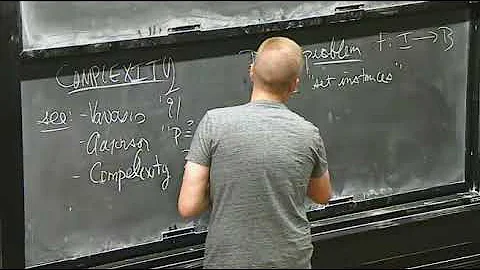 COMPLEXITY
see: - Vavasis '91
- Aaronson "P ?=
- Complexity
problem f: I → B
"set instances"